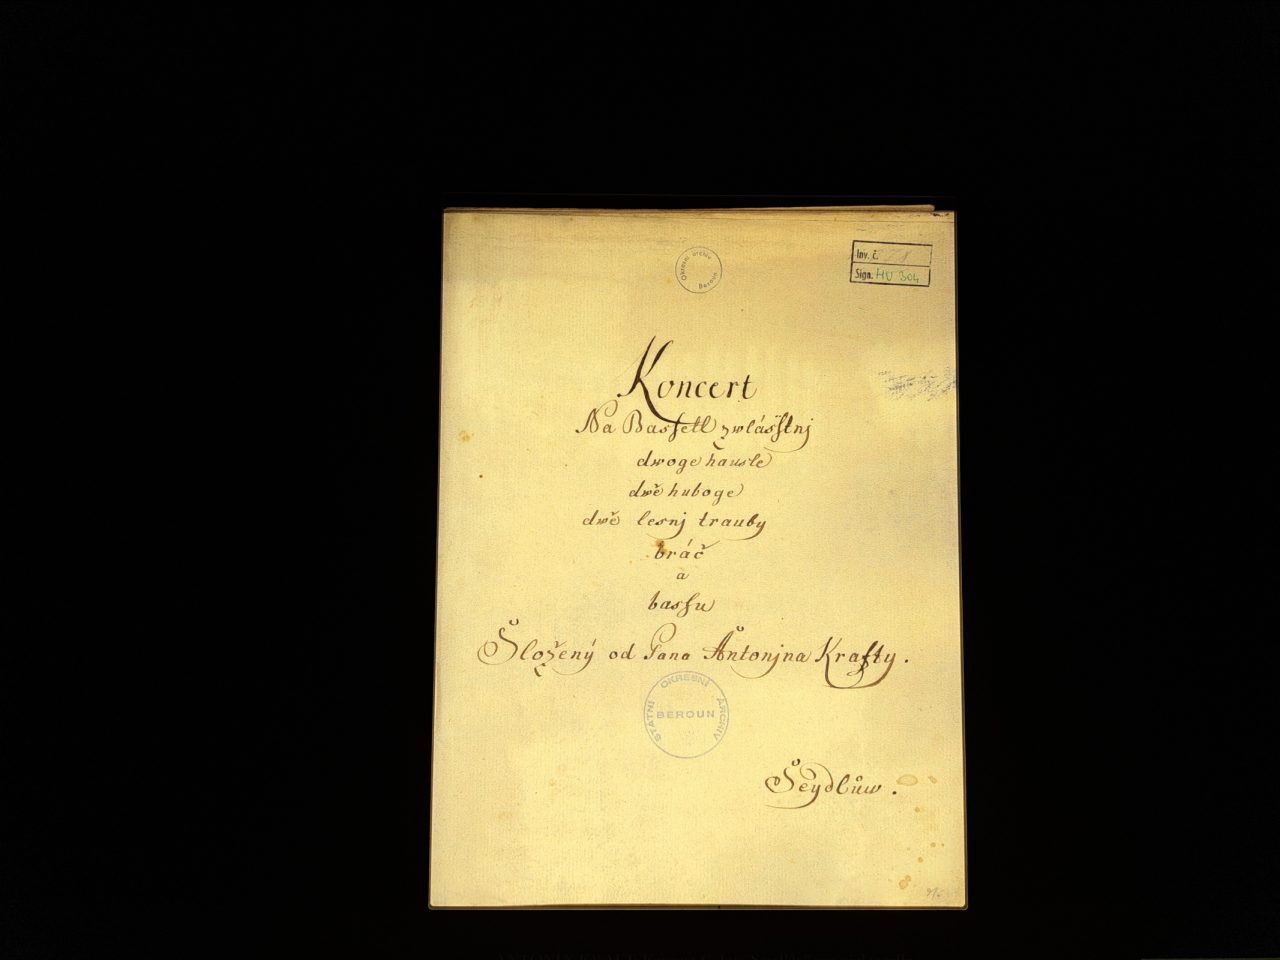 Okresní archiv Beroun
Inv. č.
Sign. HU 304
Koncert
Na Bassetl zwlásstnj
dwoge hausle
dwě huboge
dwě lesnj trauby
bráč
a
bassu
Složený od Pana Antonjna Krafty.
STÁTNÍ OKRESNÍ ARCHIV
BEROUN
Šeydlůw.